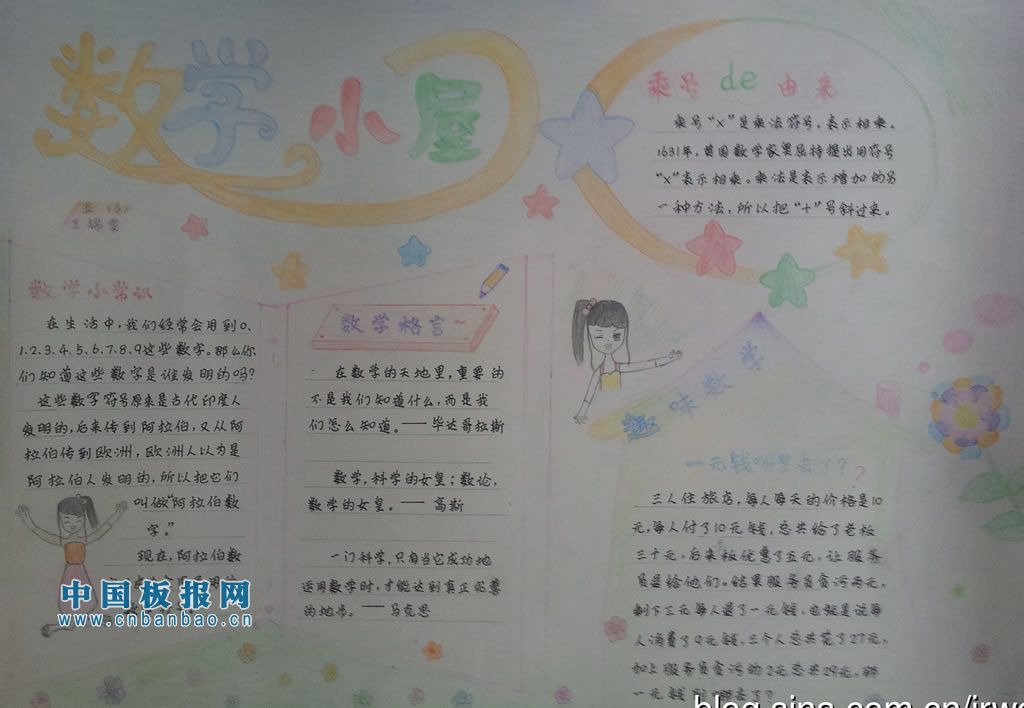 数学小屋
五（3）
王锦雯
乘号de由来
乘号“×”是乘法符号，表示相乘。
1631年，英国数学家奥屈特提出用符号
“×”表示相乘。乘法是表示增加的另
一种方法，所以把“+”号斜过来。
数学小常识
在生活中，我们经常会用到0、
1.2.3.4.5.6.7.8.9这些数字。那么你
们知道这些数字是谁发明的吗？
这些数字符号原来是古代印度人
发明的，后来传到阿拉伯，又从阿
拉伯传到欧洲，欧洲人以为是
阿拉伯人发明的，所以把它们
叫做“阿拉伯数
字。”
现在，阿拉伯数
数学格言~
在数学的天地里，重要的
不是我们知道什么，而是我
们怎么知道。——毕达哥拉斯
数学，科学的女皇；数论，
数学的女皇。——高斯
一门科学，只有当它成功地
运用数学时，才能达到真正完善
的地步。——马克思
趣味数学
一元钱哪里去了？？
三人住旅店，每人每天的价格是10
元，每人付了10元钱，总共给了老板
三十元，后来板优惠了五元，让服务
员退给他们。结果服务员贪污两元，
剩下三元每人退了一元钱，也就是说每
人消费了9元钱。三个人总共花了27元，
加上服务员贪污的2元总共29元。那
一元钱到哪去了？
中国板报网
www.cnbanbao.cn
blog.sina.com.cn/jrw